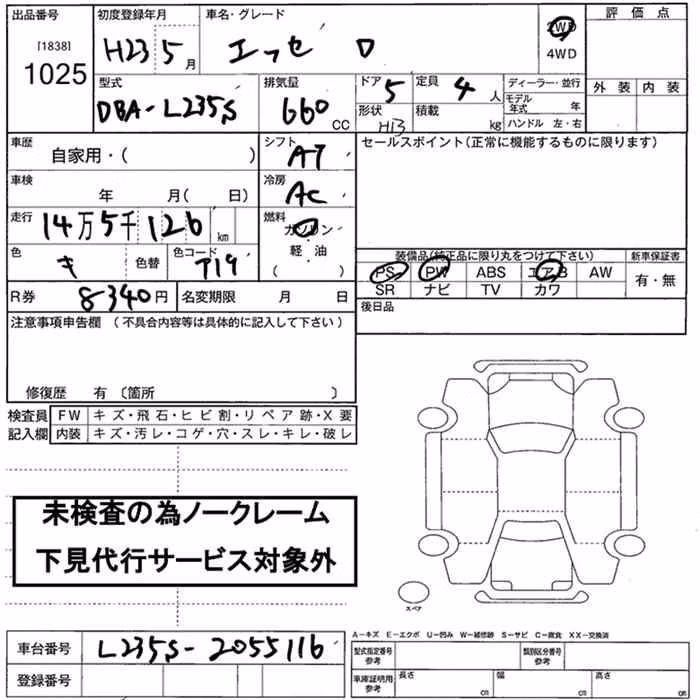 出品番号 初度登録年月 車名・グレード 2WD 評価点
[1838] H23 5月 エッセ D 4WD
1025 外装 内装
型式 排気量 ドア 定員 ディーラー・並行
DBA-L235S 660 CC 5 4人 モデル年式 年
形状 H13 積載 kg ハンドル 左・右
車歴 シフト セールスポイント(正常に機能するものに限ります)
自家用・( ) AT
車検 冷房
年 月( 日) AC
走行 燃料
14万5千126km ガソリン
色 色替 色コード 軽・油
キ T19 ( )
装備品(純正品に限り丸をつけて下さい) 新車保証書
PS PW ABS エアB AW 有・無
SR ナビ TV カワ
R券 8340円 名変期限 月 日 後日品
注意事項申告欄 (不具合内容等は具体的に記入して下さい)
修復歴 有 〔箇所 〕
検査員 FW キズ・飛石・ヒビ割・リペア跡・X要
記入欄 内装 キズ・汚レ・コゲ・穴・スレ・キレ・破レ
未検査の為ノークレーム
下見代行サービス対象外
スペア
A-キズ E-エクボ U-凹み W-補修跡 S-サビ C-腐食 XX-交換済
車台番号 L235S-2055116 型式指定番号 参考 類別区分番号 参考
登録番号 車庫証明用 参考 長さ cm 幅 cm 高さ cm